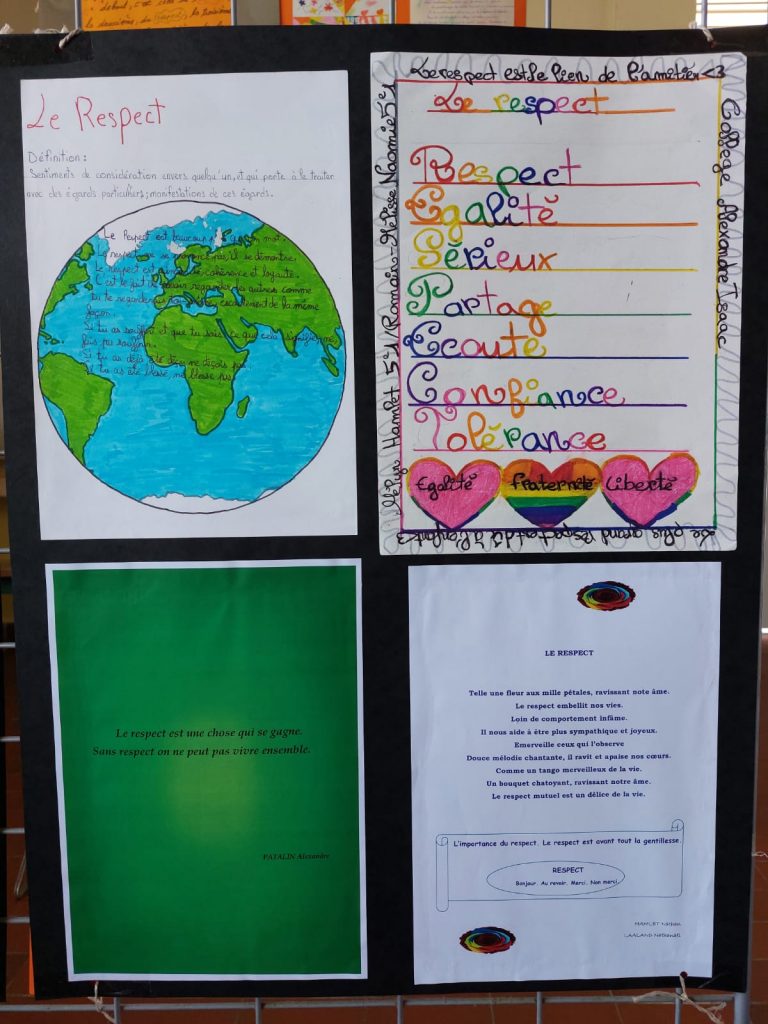 Le Respect
Définition :
Sentiments de considération envers quelqu'un, et qui porte à le traiter
avec des égards particuliers; manifestations de ces égards.
Le Respect est beaucoup + qu'un mot.
Le respect ne se pas, il se démontre.
Le respect est cohérence et loyauté.
C'est le fait de regarder les autres comme
tu te regardes de la même
façon.
Si tu as souffert et que tu sais ce que cela signifie, ne
fais pas souffrir.
Si tu as déjà été déçu, ne déçois pas.
Si tu as été blessé, ne blesse pas.
Le respect est le lien de l'amitié <3
Le respect
Respect
Egalité
Sérieux
Partage
Ecoute
Confiance
Tolérance
Egalité fraternité Liberté
Collège Alexandre Isaac
Hamlet 5°1 Romain-Mélisse Naomie 5°1
Le plus grand respect est dû à l'enfant <3
Le respect est une chose qui se gagne.
Sans respect on ne peut pas vivre ensemble.
PATALIN Alexandre
LE RESPECT
Telle une fleur aux mille pétales, ravissant note âme.
Le respect embellit nos vies.
Loin de comportement infâme.
Il nous aide à être plus sympathique et joyeux.
Emerveille ceux qui l'observe
Douce mélodie chantante, il ravit et apaise nos cœurs.
Comme un tango merveilleux de la vie.
Un bouquet chatoyant, ravissant notre âme.
Le respect mutuel est un délice de la vie.
L'importance du respect. Le respect est avant tout la gentillesse.
RESPECT
Bonjour. Au revoir. Merci. Non merci.